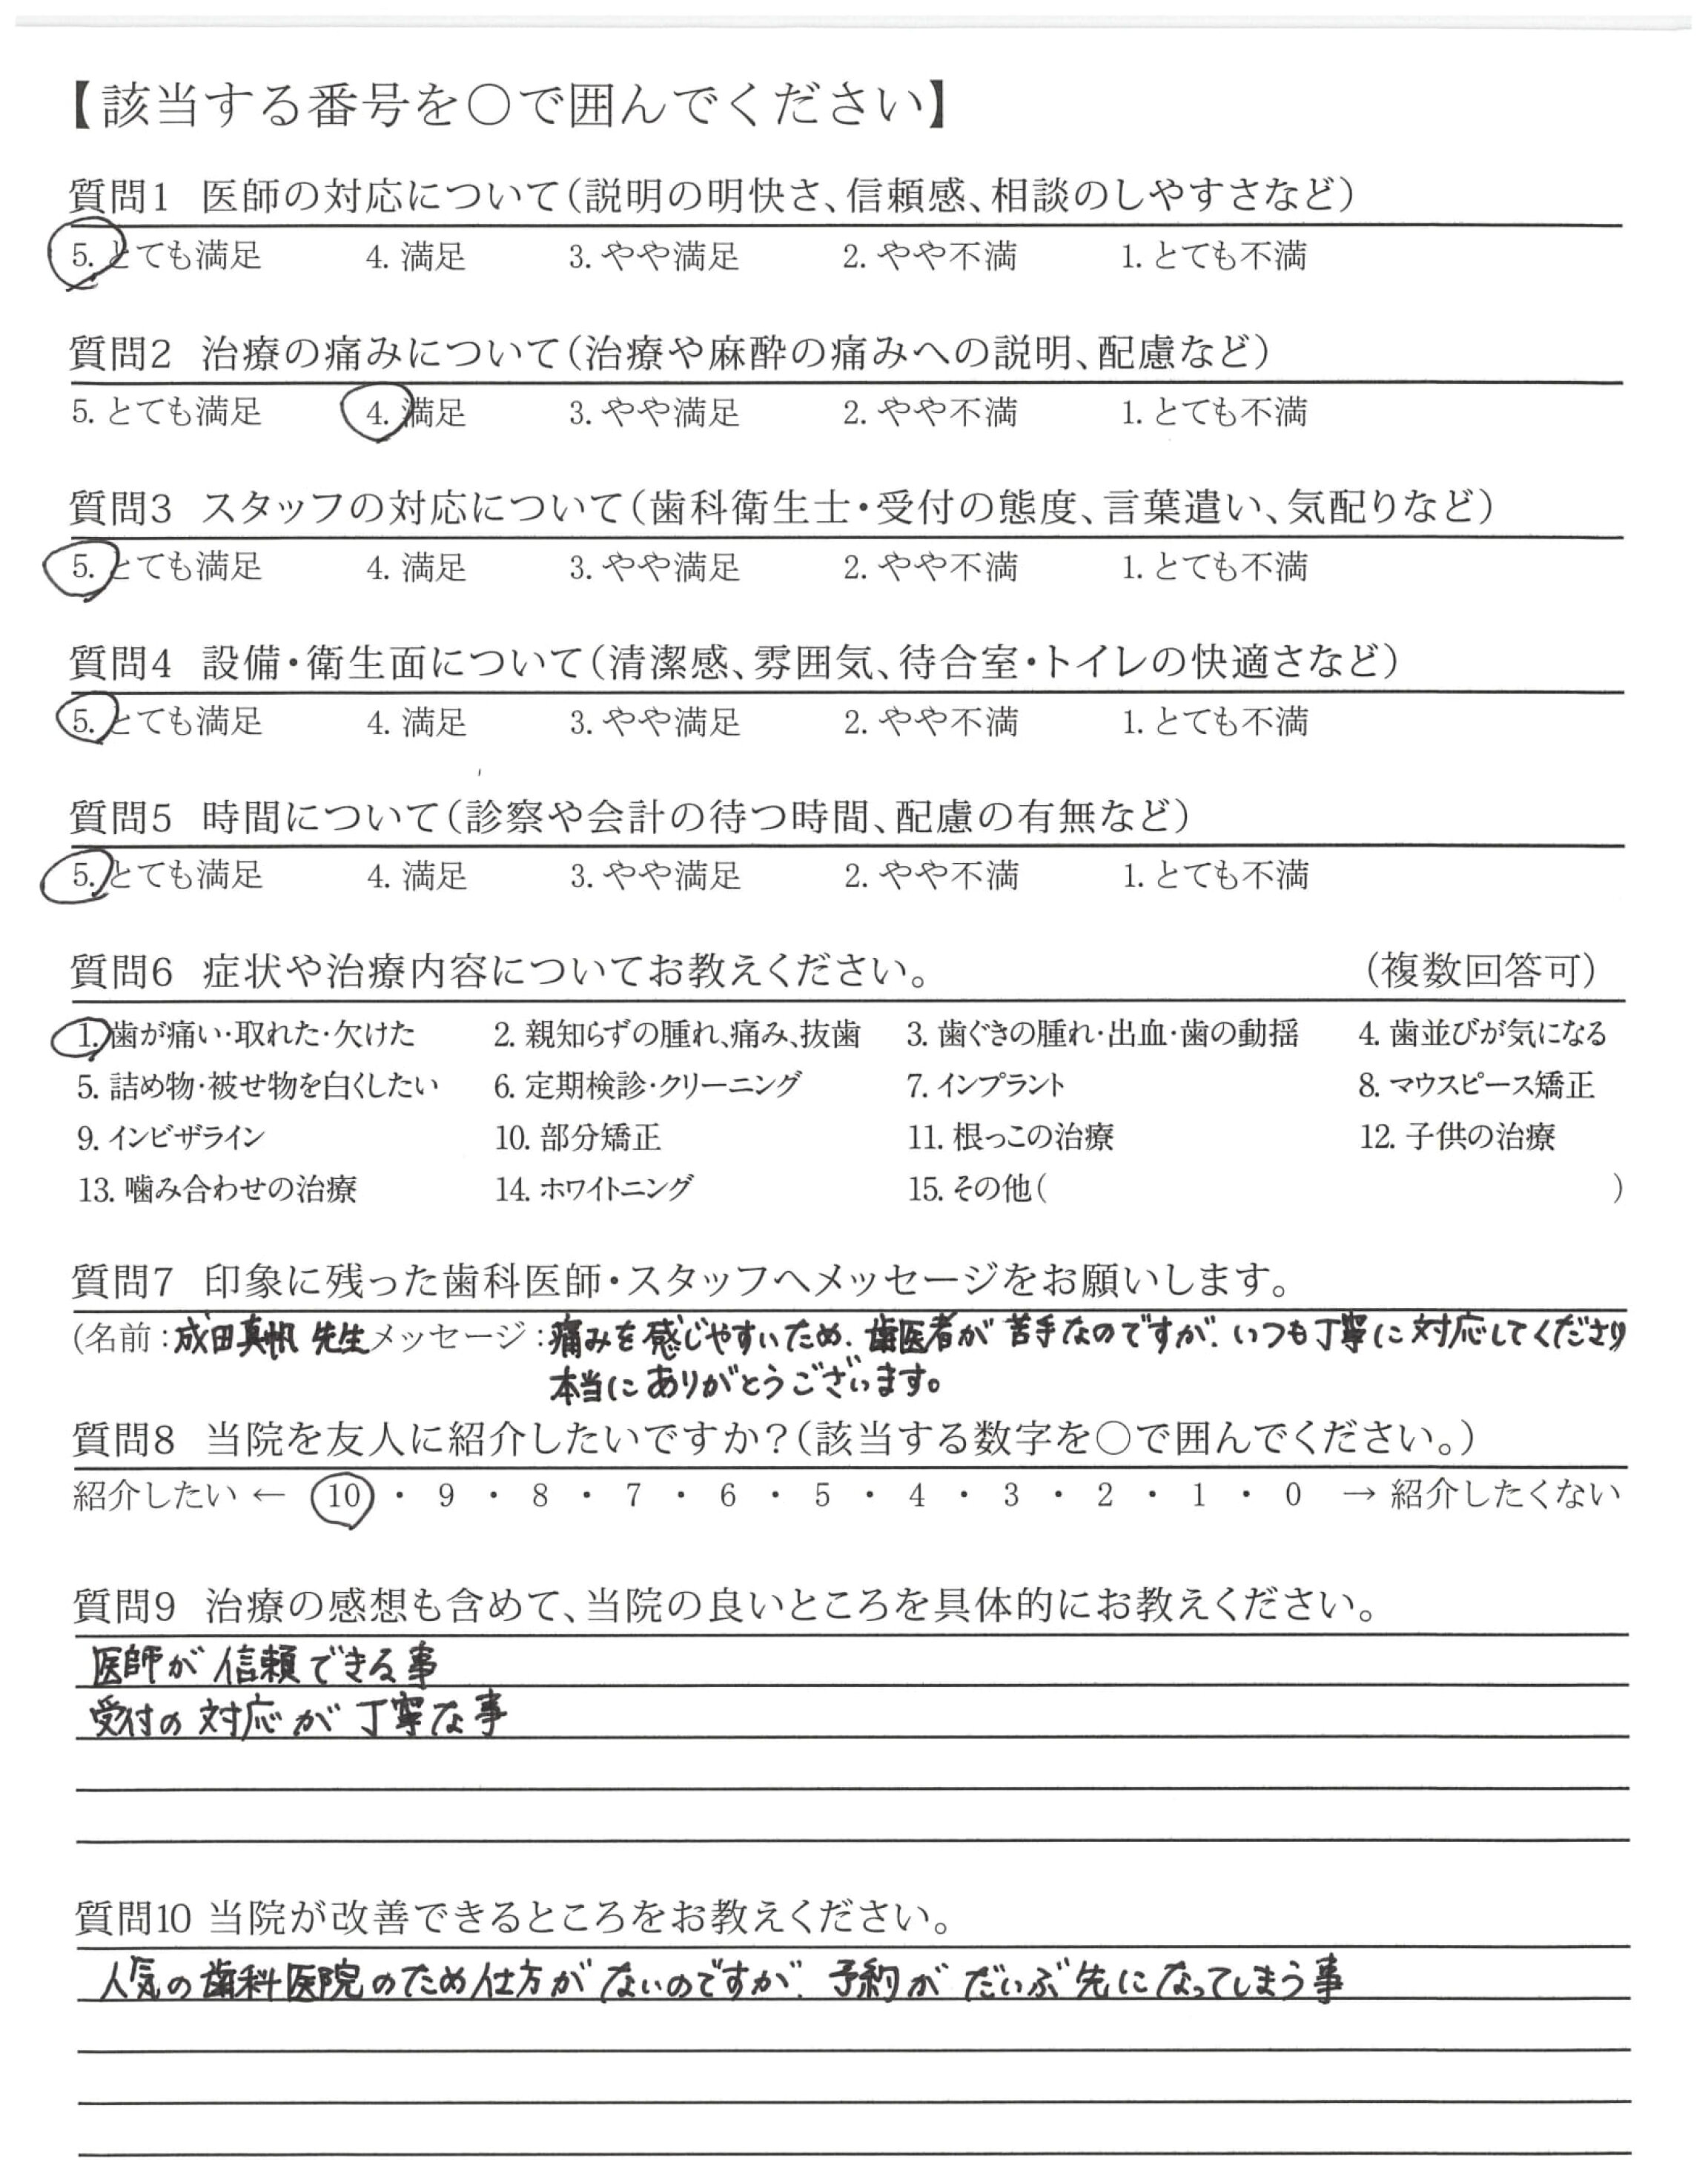 【該当する番号を○で囲んでください】
質問1 医師の対応について（説明の明快さ、信頼感、相談のしやすさなど）
5. とても満足 4. 満足 3. やや満足 2. やや不満 1. とても不満
質問2 治療の痛みについて（治療や麻酔の痛みへの説明、配慮など）
5. とても満足 4. 満足 3. やや満足 2. やや不満 1. とても不満
質問3 スタッフの対応について（歯科衛生士・受付の態度、言葉遣い、気配りなど）
5. とても満足 4. 満足 3. やや満足 2. やや不満 1. とても不満
質問4 設備・衛生面について（清潔感、雰囲気、待合室・トイレの快適さなど）
5. とても満足 4. 満足 3. やや満足 2. やや不満 1. とても不満
質問5 時間について（診察や会計の待つ時間、配慮の有無など）
5. とても満足 4. 満足 3. やや満足 2. やや不満 1. とても不満
質問6 症状や治療内容についてお教えください。 （複数回答可）
1. 歯が痛い・取れた・欠けた 2. 親知らずの腫れ、痛み、抜歯 3. 歯ぐきの腫れ・出血・歯の動揺 4. 歯並びが気になる
5. 詰め物・被せ物を白くしたい 6. 定期検診・クリーニング 7. インプラント 8. マウスピース矯正
9. インビザライン 10. 部分矯正 11. 根っこの治療 12. 子供の治療
13. 噛み合わせの治療 14. ホワイトニング 15. その他（ ）
質問7 印象に残った歯科医師・スタッフへメッセージをお願いします。
（名前：成田真帆 先生 メッセージ：痛みを感じやすいため、歯医者が苦手なのですが、いつも丁寧に対応してくださり
本当にありがとうございます。
質問8 当院を友人に紹介したいですか？（該当する数字を○で囲んでください。）
紹介したい ← 10 ・ 9 ・ 8 ・ 7 ・ 6 ・ 5 ・ 4 ・ 3 ・ 2 ・ 1 ・ 0 → 紹介したくない
質問9 治療の感想も含めて、当院の良いところを具体的にお教えください。
医師が信頼できる事
受付の対応が丁寧な事
質問10 当院が改善できるところをお教えください。
人気の歯科医院のため仕方がないのですが、予約がだいぶ先になってしまう事